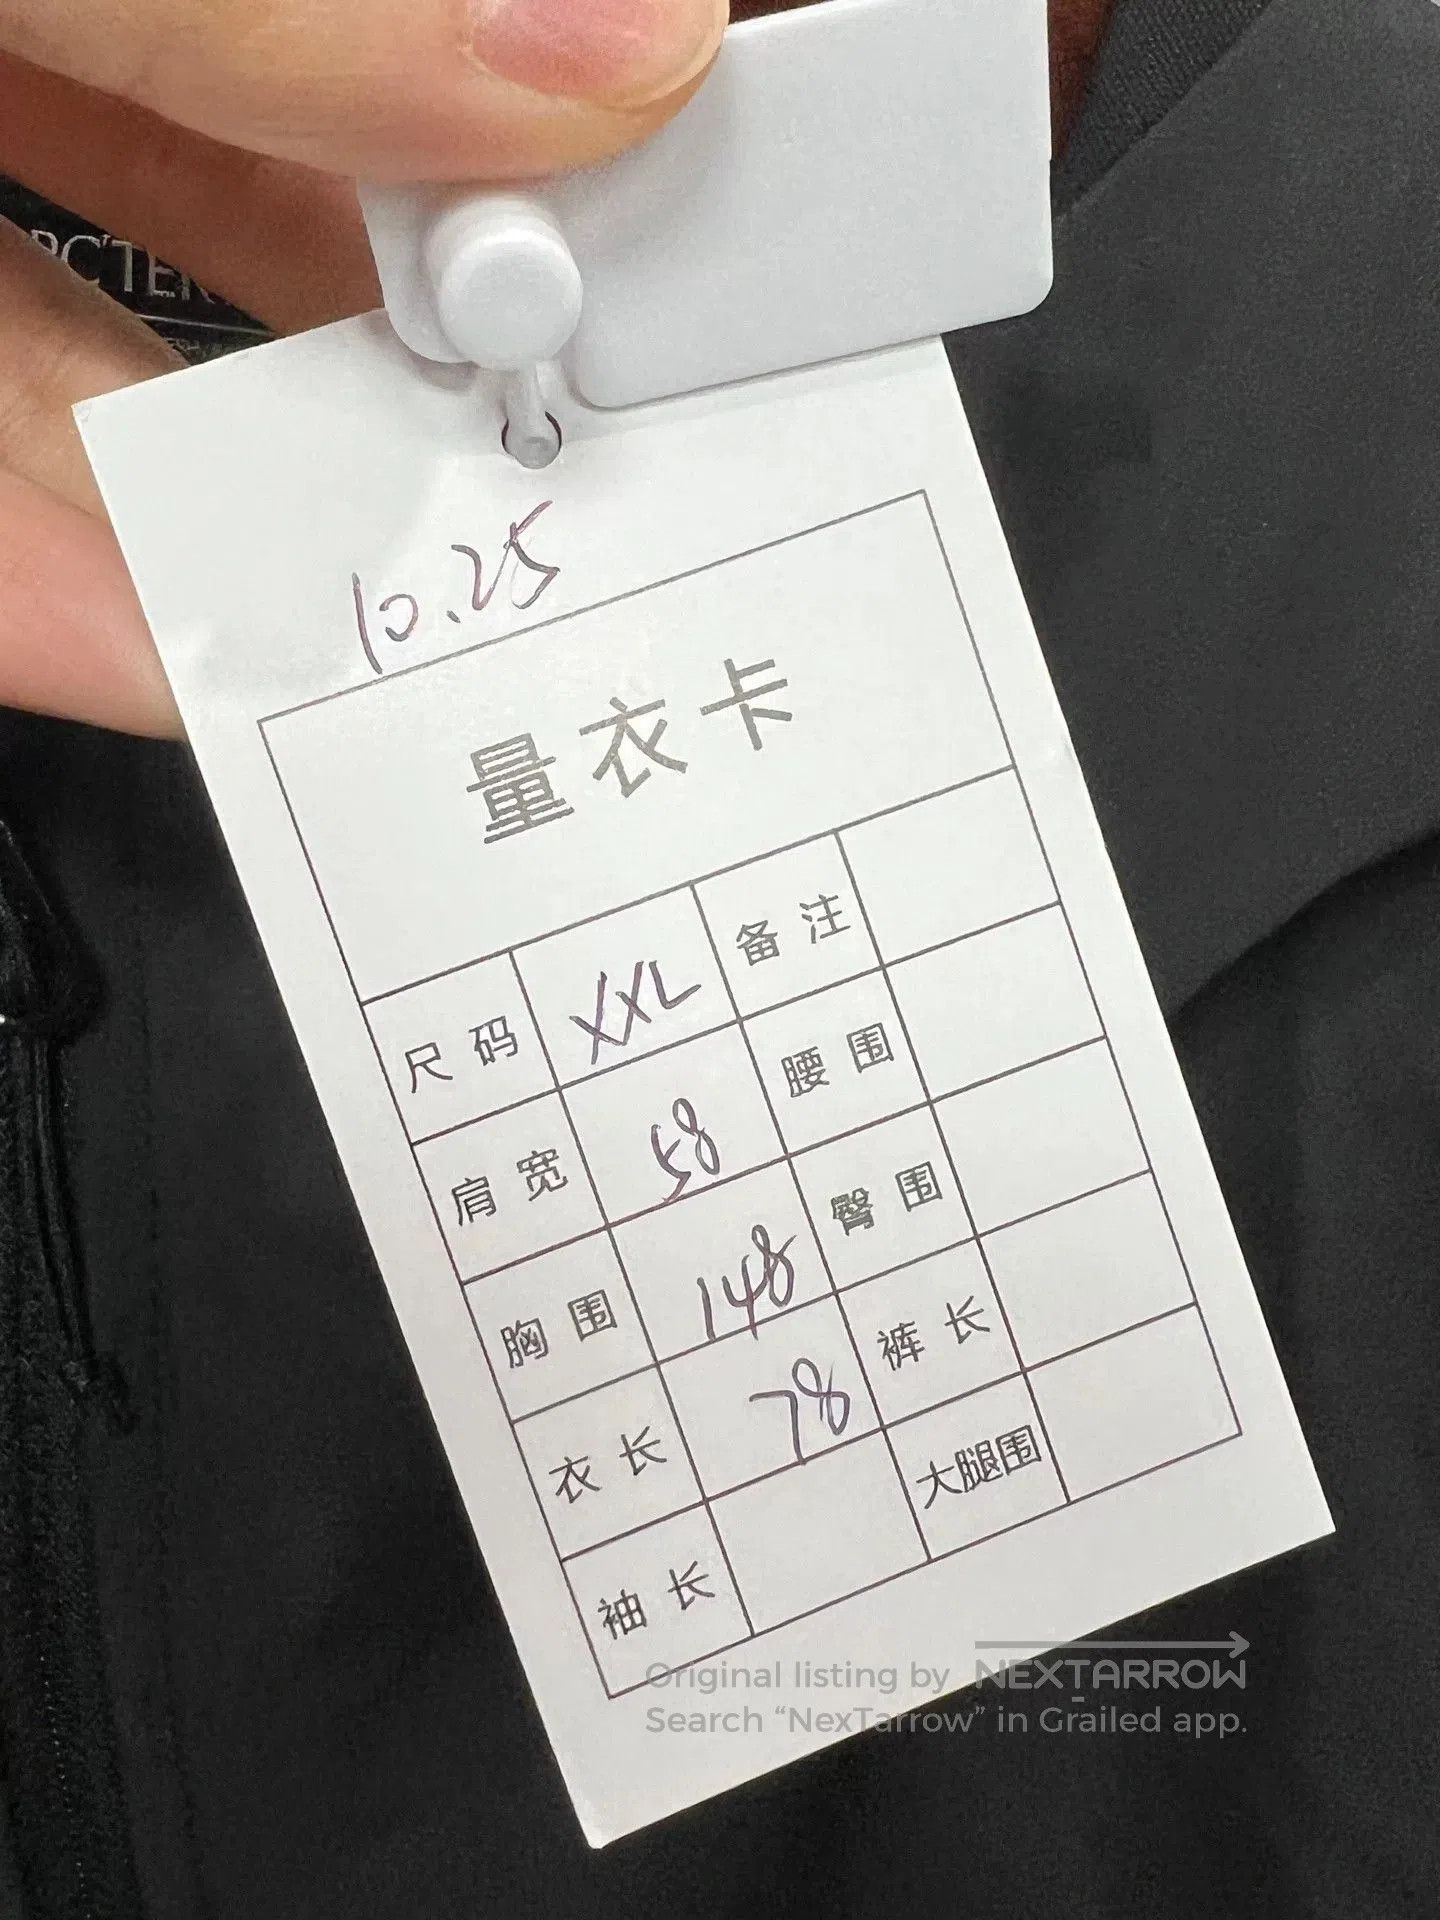 10.25
量衣卡
尺码 XXL 备注
肩宽 58 腰围
胸围 148 臀围
衣长 78 裤长
袖长 大腿围
Original listing by NEXTARROW
Search “NexTarrow” in Grailed app.